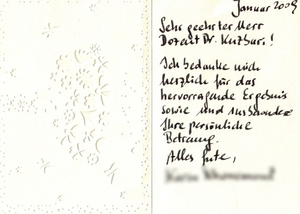 Januar 2009
Sehr geehrter Herr
Dozent Dr. Kuzbari!
Ich bedanke mich
herzlich für das
hervorragende Ergebnis
sowie und insbesondere
Ihre persönliche
Betreuung.
Alles Gute,